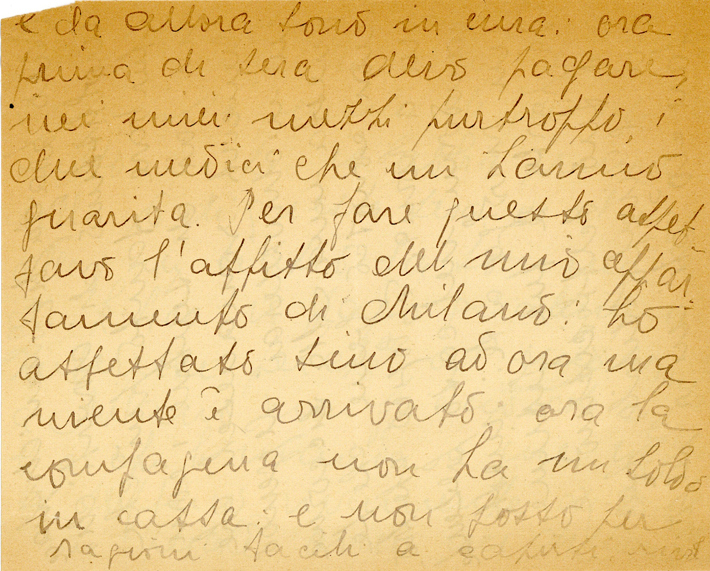 e da allora sono in cura: ora
prima di sera devo pagare,
nei miei mezzi purtroppo, i
due medici che mi hanno
guarita. Per fare questo aspet-
tavo l'affitto del mio appar-
tamento di Milano: ho
aspettato sino ad ora ma
niente è arrivato: ora la
compagnia non ha un soldo
in cassa: e non posso per
ragioni facili a capirsi